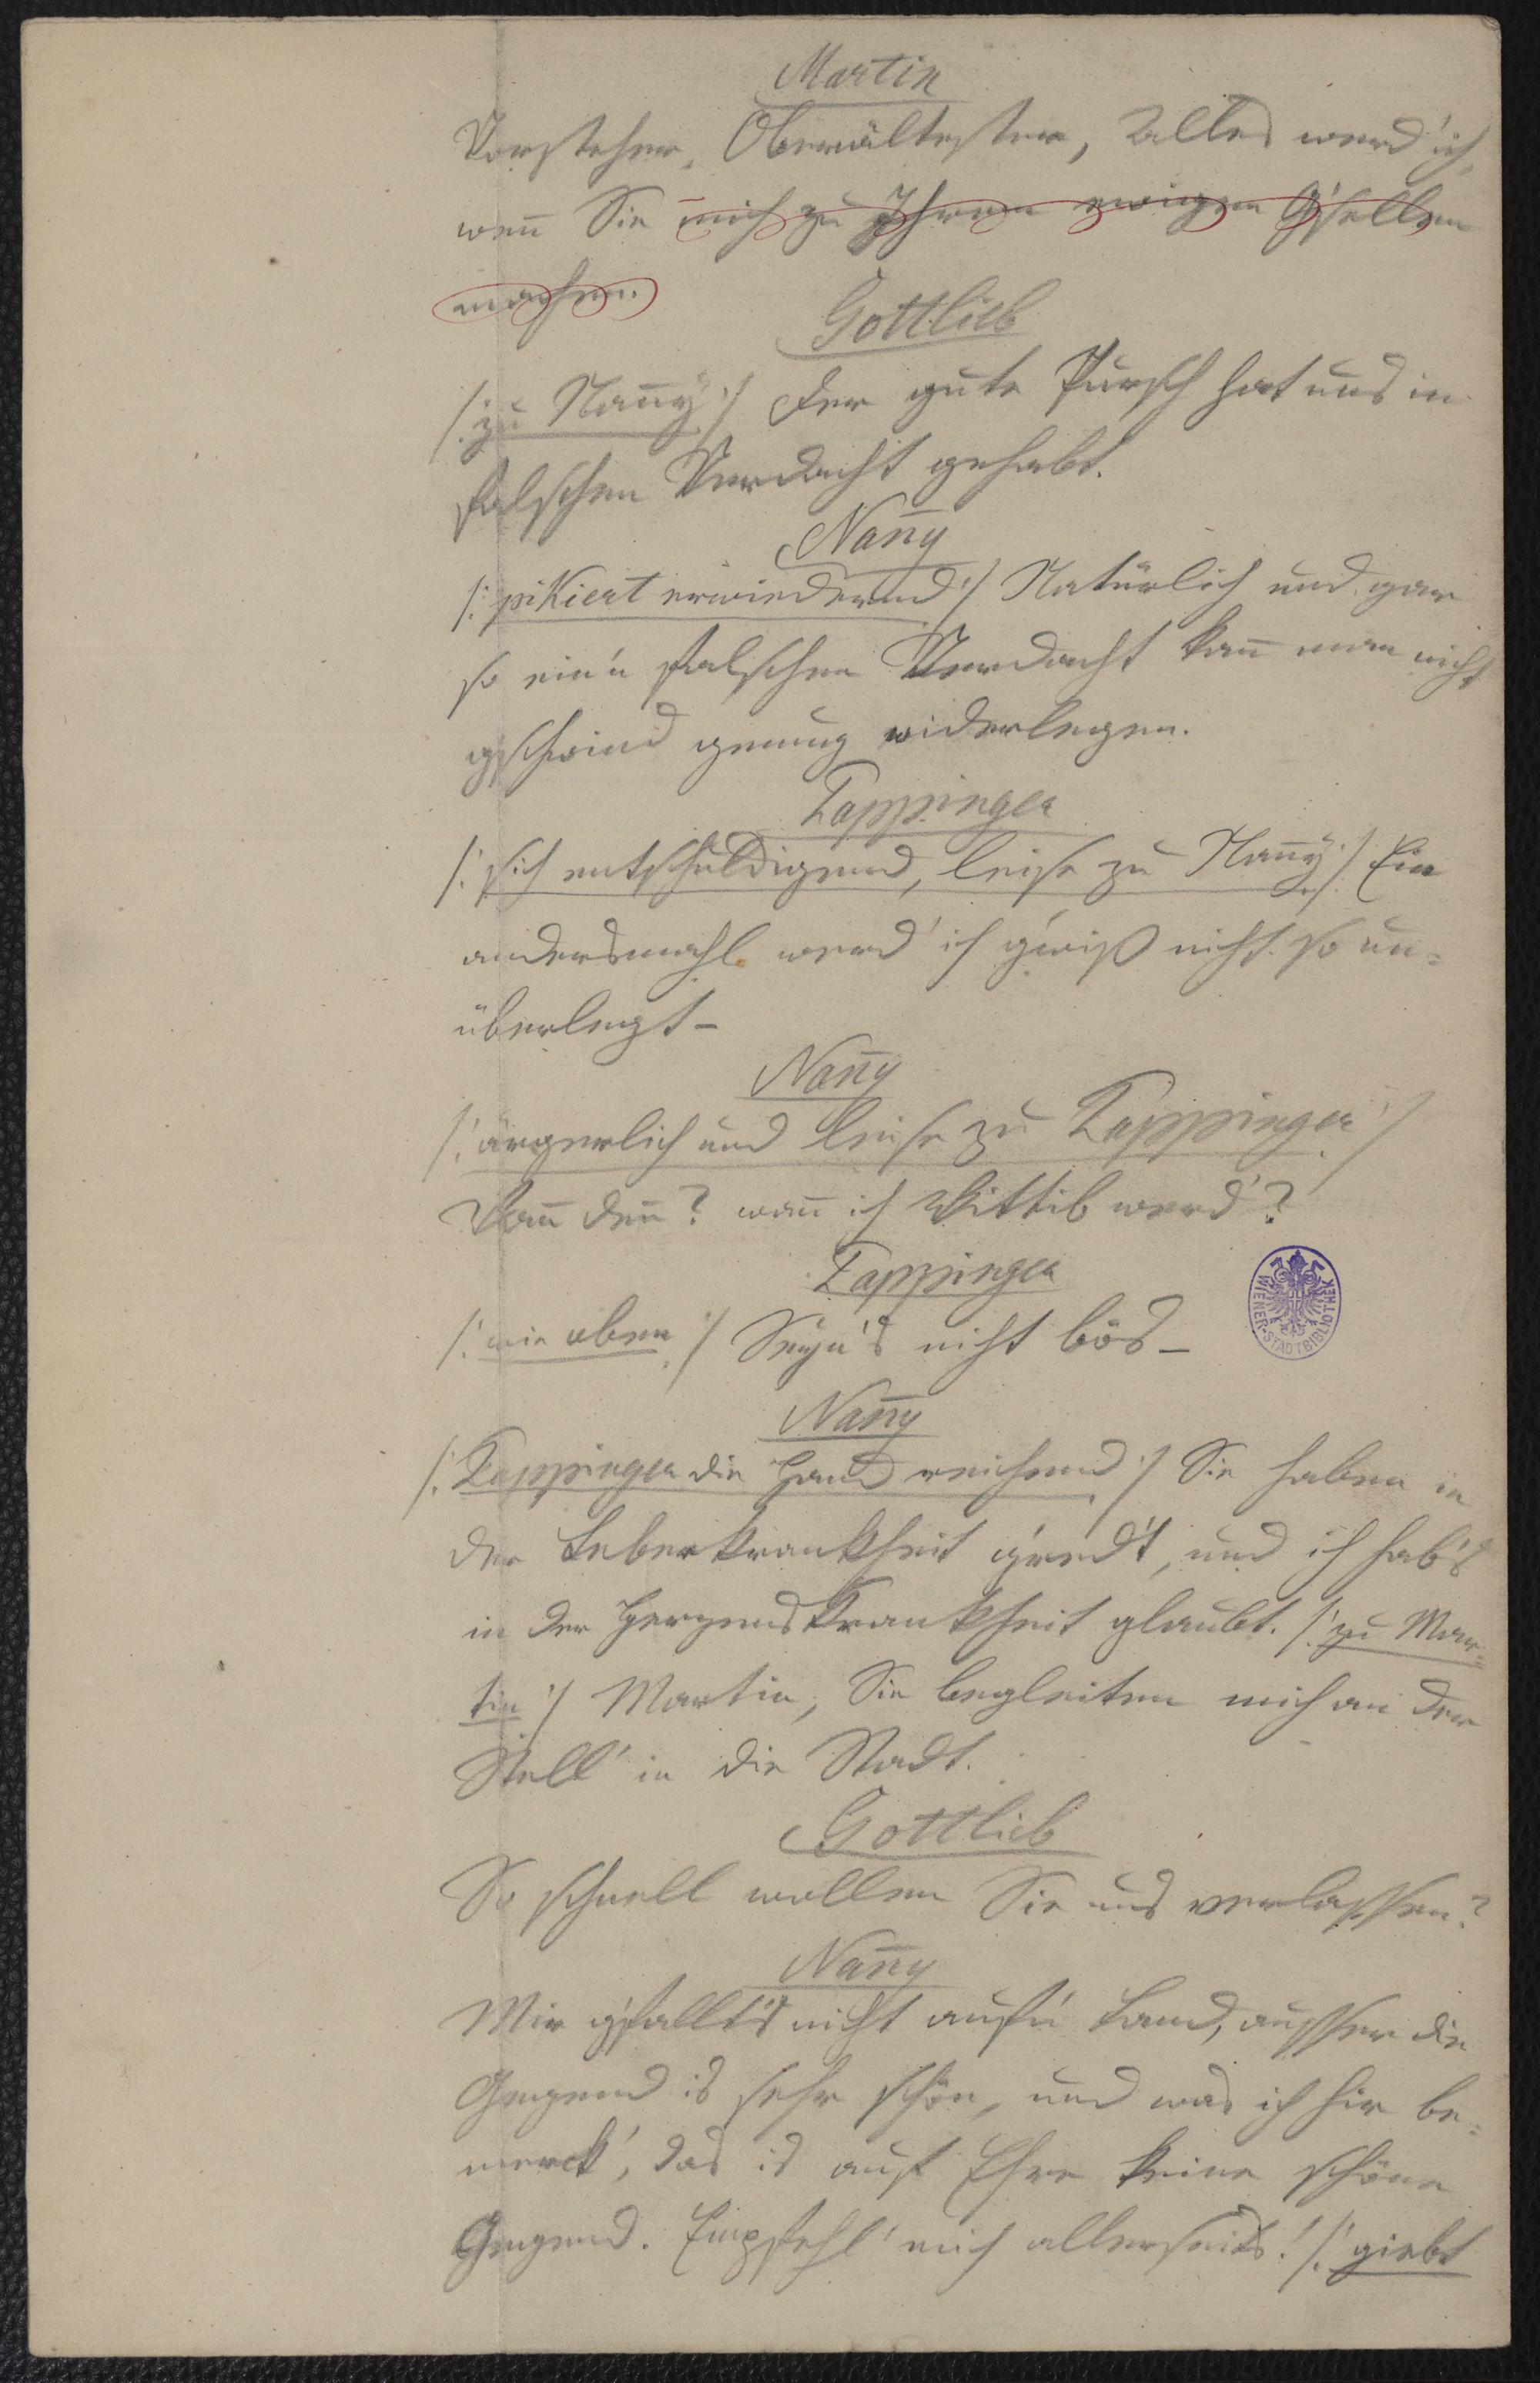 Martin
Vorsteher, Oberältester, Alles werd' ich,
wenn̄ Sie mich zu Ihrem ewigen G'sellen
machen.
Gottlieb
/: zu Nan̄y :/ Der gute Pursch hat uns in
falschen Verdacht gehabt.
Nan̄y
/: pikiert erwiedernd :/ Natürlich und gar
so ein'n falschen Verdacht kan̄ man nicht
gschwind genug widerlegen.
Tappinger
/: sich entschuldigend, leise zu Nan̄y :/ Ein
andersmahl werd' ich g'wiß nicht so un=
überlegt –
Nan̄y
/: ärgerlich und leise zu Tappinger :/
Wan̄ den̄? wan̄ ich Wittib werd'?
Tappinger
/: wie oben :/ Seyn's nicht bös –
WIENER-STADTBIBLIOTHEK
Nan̄y
/: Tappinger die Hand reichend :/ Sie haben in
der Leberkrankheit g'redt, und ich hab's
in der Herzenskrankheit glaubt. /: zu Mar=
tin :/ Martin, Sie begleiten mich an der
Stell' in die Stadt.
Gottlieb
So schnell wollen Sie uns verlassen?
Nan̄y
Mir g'fallt's nicht auf'n Land, ausser die
Gegend is sehr schön, und was ich hier be=
merck', das is auf Ehre keine schöne
Gegend. Empfehl' mich allerseits! /: giebt